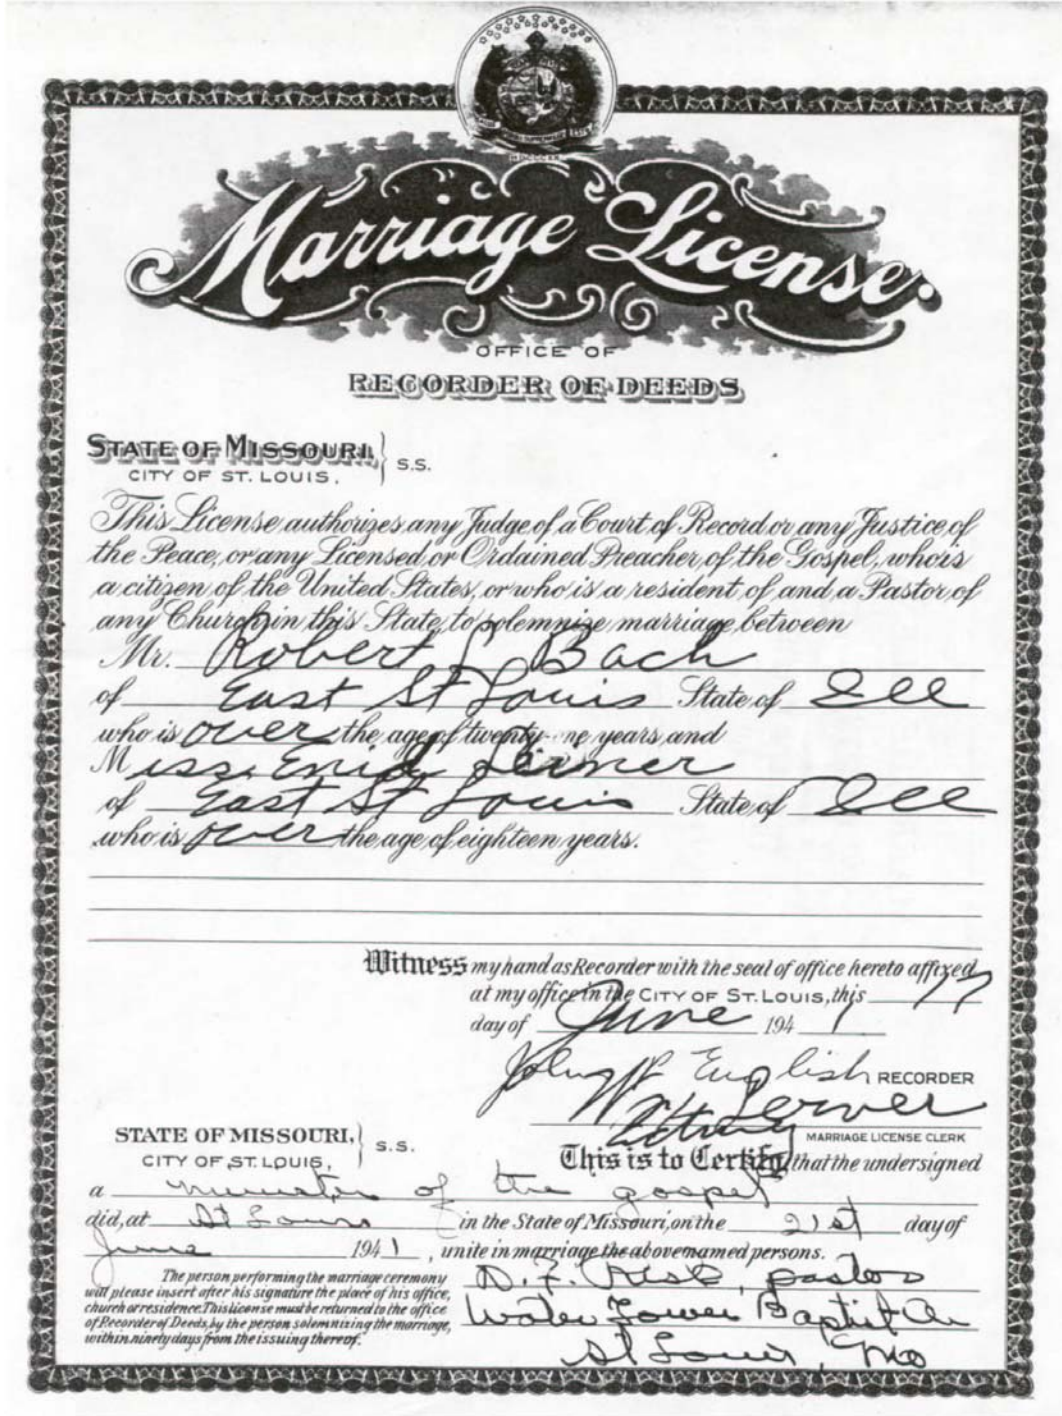 Marriage License.
OFFICE OF
RECORDER OF DEEDS
STATE OF MISSOURI,
CITY OF ST. LOUIS.
S.S.
This License authorizes any Judge of a Court of Record or any Justice of
the Peace, or any Licensed or Ordained Preacher of the Gospel, who is
a citizen of the United States, or who is a resident of and a Pastor of
any Church in this State, to solemnize marriage between
Mr. Robert L Bach
of East St Louis State of Ill
who is over the age of twenty-one years, and
Miss Enid
of East St Louis State of Ill
who is over the age of eighteen years.
Witness my hand as Recorder with the seal of office hereto affixed,
at my office in the CITY OF ST. LOUIS, this 17
day of June 1941
English RECORDER
MARRIAGE LICENSE CLERK
STATE OF MISSOURI,
CITY OF ST. LOUIS,
S.S.
This is to Certify, that the undersigned
a minister of the gospel
did, at St Louis in the State of Missouri, on the 21st day of
June 1941, unite in marriage the above named persons.
The person performing the marriage ceremony
will please insert after his signature the place of his office,
church or residence. This license must be returned to the office
of Recorder of Deeds, by the person solemnizing the marriage,
within ninety days from the issuing thereof.
pastor
Water Tower Baptist Ch
St Louis, Mo